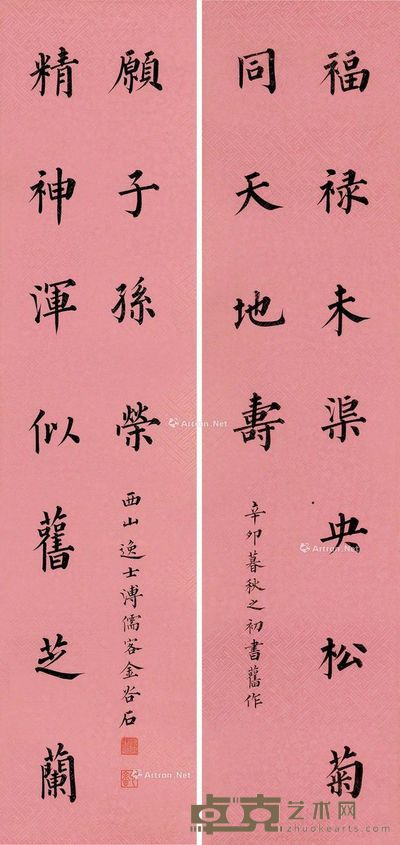 福禄未渠央松菊
同天地壽
辛卯暮秋之初書舊作
精神渾似舊芝蘭
願子孫榮
西山逸士溥儒客金谷石
Artron.Net
Artron.Net
Artron.Net
卓克艺术网
zhuokearts.com